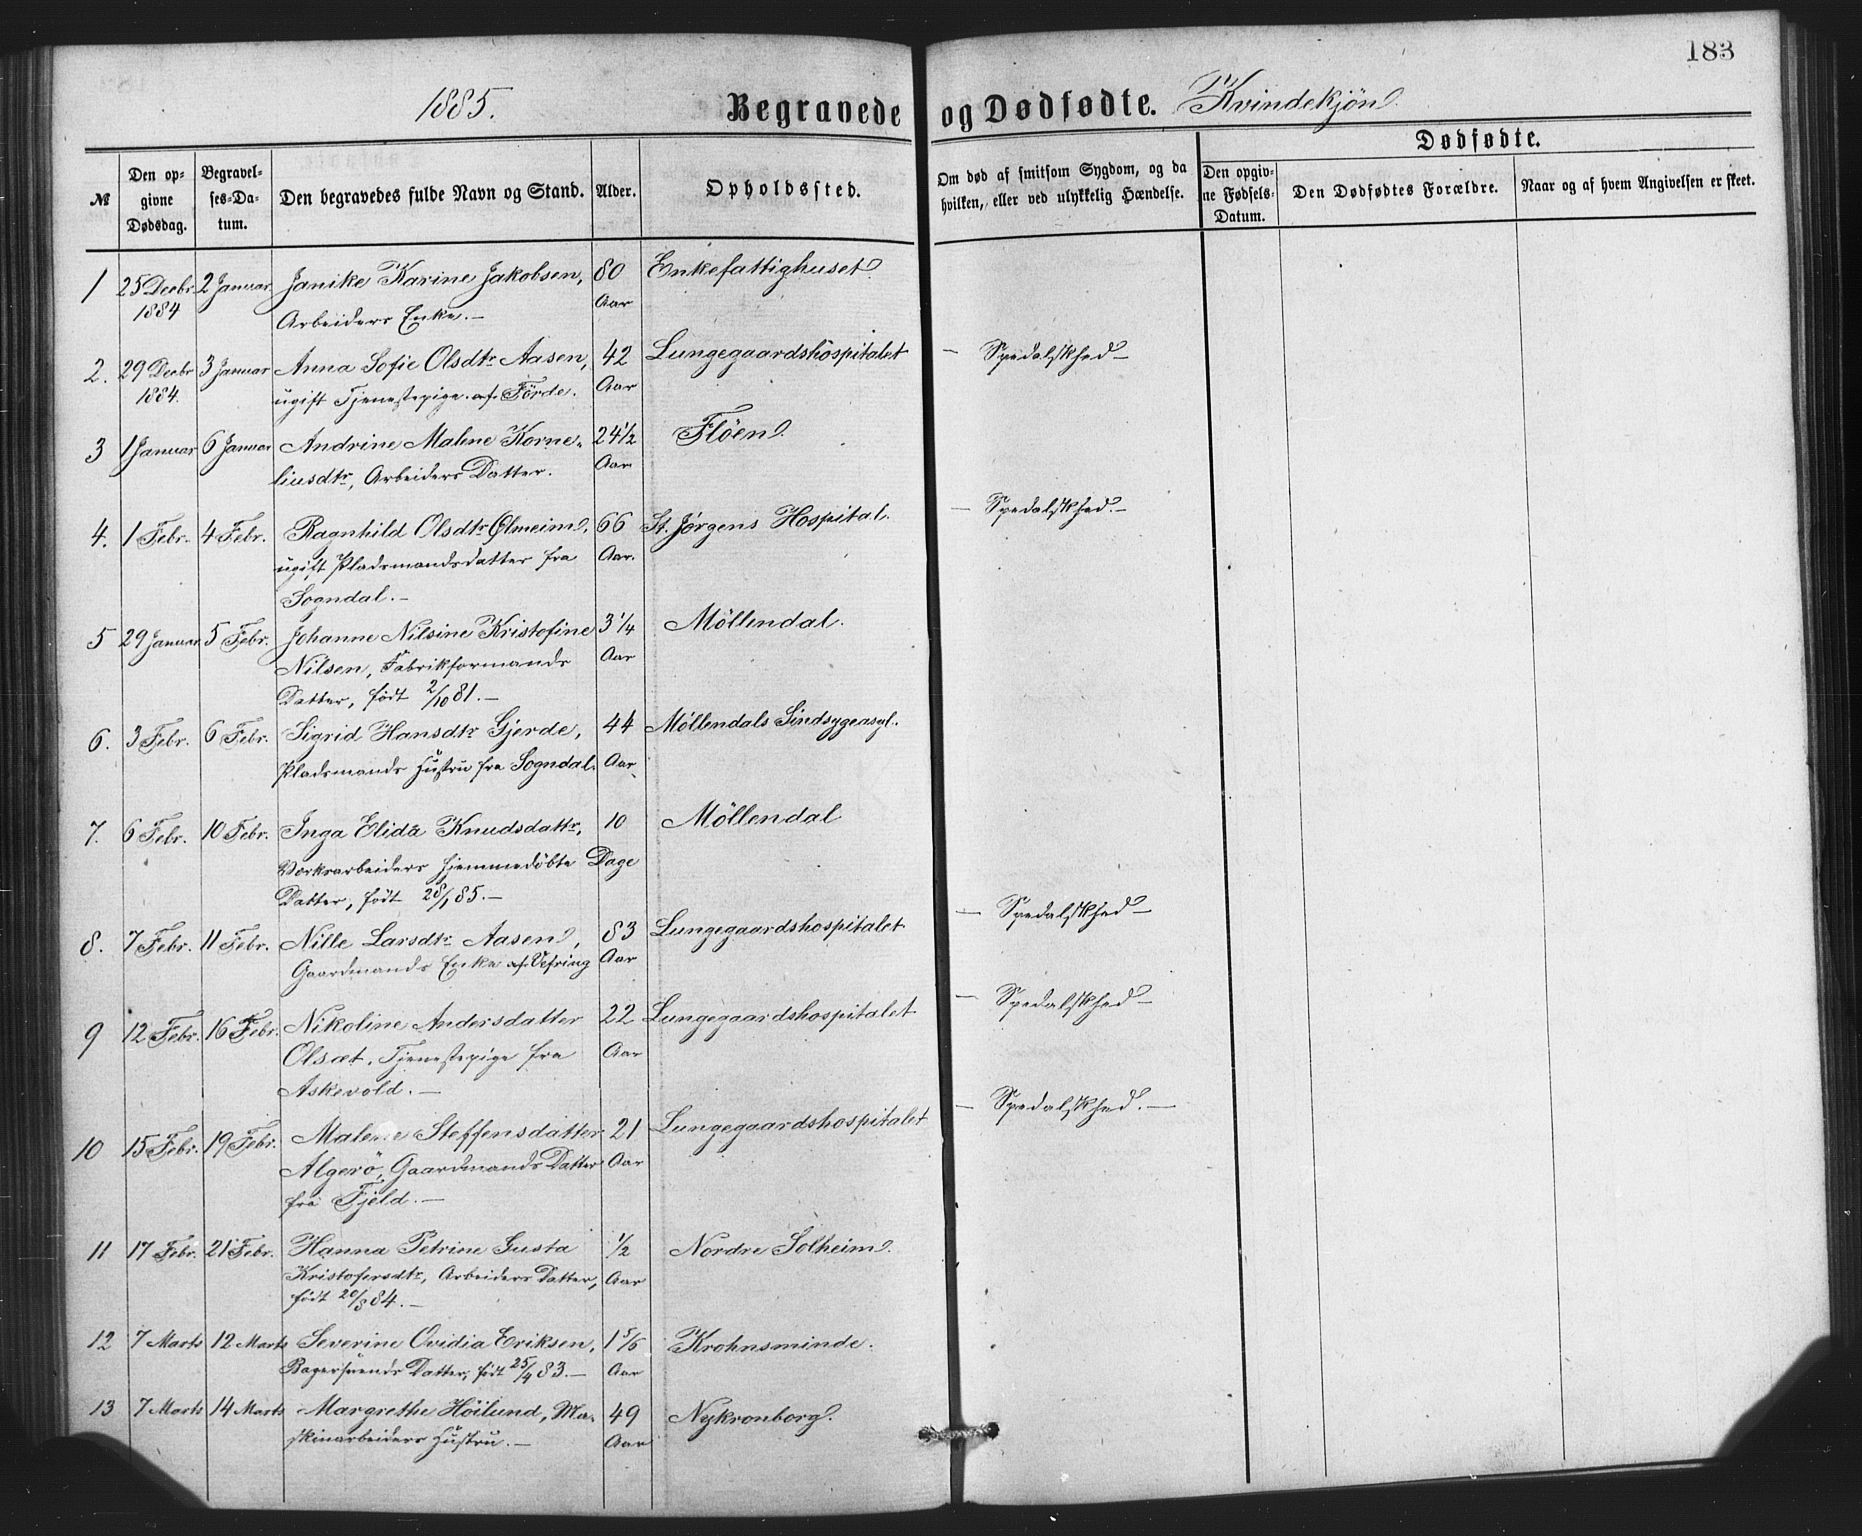 183
1885. Begravede og Dødfødte. Kvindekjøn.
№
Den opgivne Dødsdag.
Begravelses-Datum.
Den begravedes fulde Navn og Stand.
Alder.
Opholdssted.
Om død af smitsom Sygdom, og da hvilken, eller ved ulykkelig Hændelse.
Dødfødte.
Den opgivne Fødsels-Datum.
Den Dødfødtes Forældre.
Naar og af hvem Angivelsen er skeet.
1 25 Decbr. 2 Januar Janike Karine Jakobsen, 80 Enkefattighuset.
1884 Arbeiders Enke.— Aar
2. 29 Decbr 3 Januar Anna Sofie Olsdtr. Aasen, 42 Lungegaardshospitalet — Spedalskhed—
1884. ugift Tjenestepige af Förde. Aar
3 1 Januar 6 Januar Andrine Malene Korne- 24 1/2 Flöen.
liusdtr, Arbeiders Datter. Aar
4. 1 Febr. 4 Febr. Ragnhild Olsdtr. Ølmeim, 66 St. Jørgens Hospital. — Spedalskhed.—
ugift Pladsmandsdatter fra Aar.
Sogndal.—
5 29 Januar 5 Febr. Johanne Nilsine Kristofine 3 1/4 Möllendal.
Nilsen, Fabrikformands Aar
Datter, født 2/10 81.—
6. 3 Febr. 6 Febr. Sigrid Hansdtr Gjerde, 44 Møllendals Sindsygeasyl.
Pladsmands Hustru fra Sogndal. Aar
7. 6 Febr. 10 Febr. Inga Elida Knudsdattr, 10 Möllendal
Værksarbeiders hjemmedöbte Dage
Datter, født 28/1 85.—
8. 7 Febr. 11 Febr. Nille Larsdtr Aasen, 83 Lungegaardshospitalet — Spedalskhed—
Gaardmands Enke af Vefring Aar
9 12 Febr. 16 Febr. Nikoline Andersdatter 22 Lungegaardshospitalet — Spedalskhed—
Olsæt, Tjenestepige fra Aar
Askevold.—
10 15 Febr. 19 Febr. Malene Steffensdatter 21 Lungegaardshospitalet — Spedalskhed.—
Algerö, Gaardmands Datter Aar
fra Fjeld.—
11 17 Febr. 21 Febr. Hanna Petrine Gusta 1/2 Nordre Solheim.
Kristofersdtr, Arbeiders Datter, Aar
født 20/8 84.—
12 7 Marts 12 Marts Severine Ovidia Eriksen, 1 5/6 Krohnsminde.
Bagersvends Datter, født 25/4 83.— Aar
13 7 Marts 14 Marts Margrethe Höilund, Ma- 49 Nykronborg.
skinarbeiders Hustru.— Aar